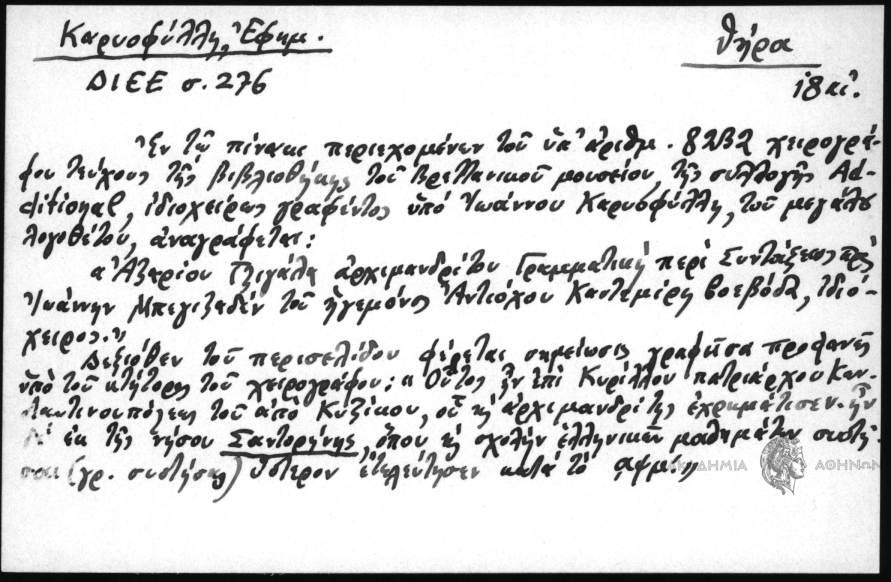 Καρυοφύλλη, Ἐφημ.
Θήρα
ΔΙΕΕ σ. 276
18 αἰ.
Ἐν τῷ πίνακι περιεχομένων τοῦ ὑπ' ἀριθμ. 8232 χειρογρά-
φου τεύχους τῆς βιβλιοθήκης τοῦ Βρεττανικοῦ μουσείου, τῆς συλλογῆς Ad-
ditional, ἰδιοχείρως γραφέντος ὑπό Ἰωάννου Καρυοφύλλη, τοῦ μεγάλου
λογοθέτου, ἀναγράφεται:
«Ἀζαρίου Τζιγάλα ἀρχιμανδρίτου Γραμματική περί Συντάξεως πρὸς
Ἰωάννην Μπεγιζαδέν τοῦ ἡγεμόνος Ἀντιόχου Καντεμίρη βοεβόδα, ἰδιό-
χειρος.»
Δεξιόθεν τοῦ περισελίδου φέρεται σημείωσις γραφεῖσα προφανῶς
ὑπό τοῦ κτήτορος τοῦ χειρογράφου: «Οὗτος ἦν ἐπί Κυρίλλου πατριάρχου Κων-
σταντινουπόλεως τοῦ ἀπό Κυζίκου, οὗ κ ἀρχιμανδρίτης ἐχρημάτισεν. ἦν
δ' ἐκ τῆς νήσου Σαντορήνης, ὅπου κ σχολήν ἑλληνικῶν μαθημάτων συστή-
σαι (γρ. συστήσας) ὕστερον ἐτελεύτησεν κατά τό αψμ.»
ΑΚΑΔΗΜΙΑ ΑΘΗΝΩΝ